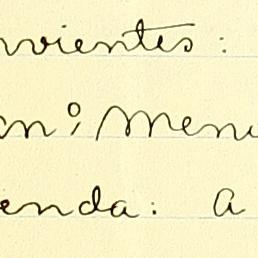 nvientes:
an° Menu
enda: a